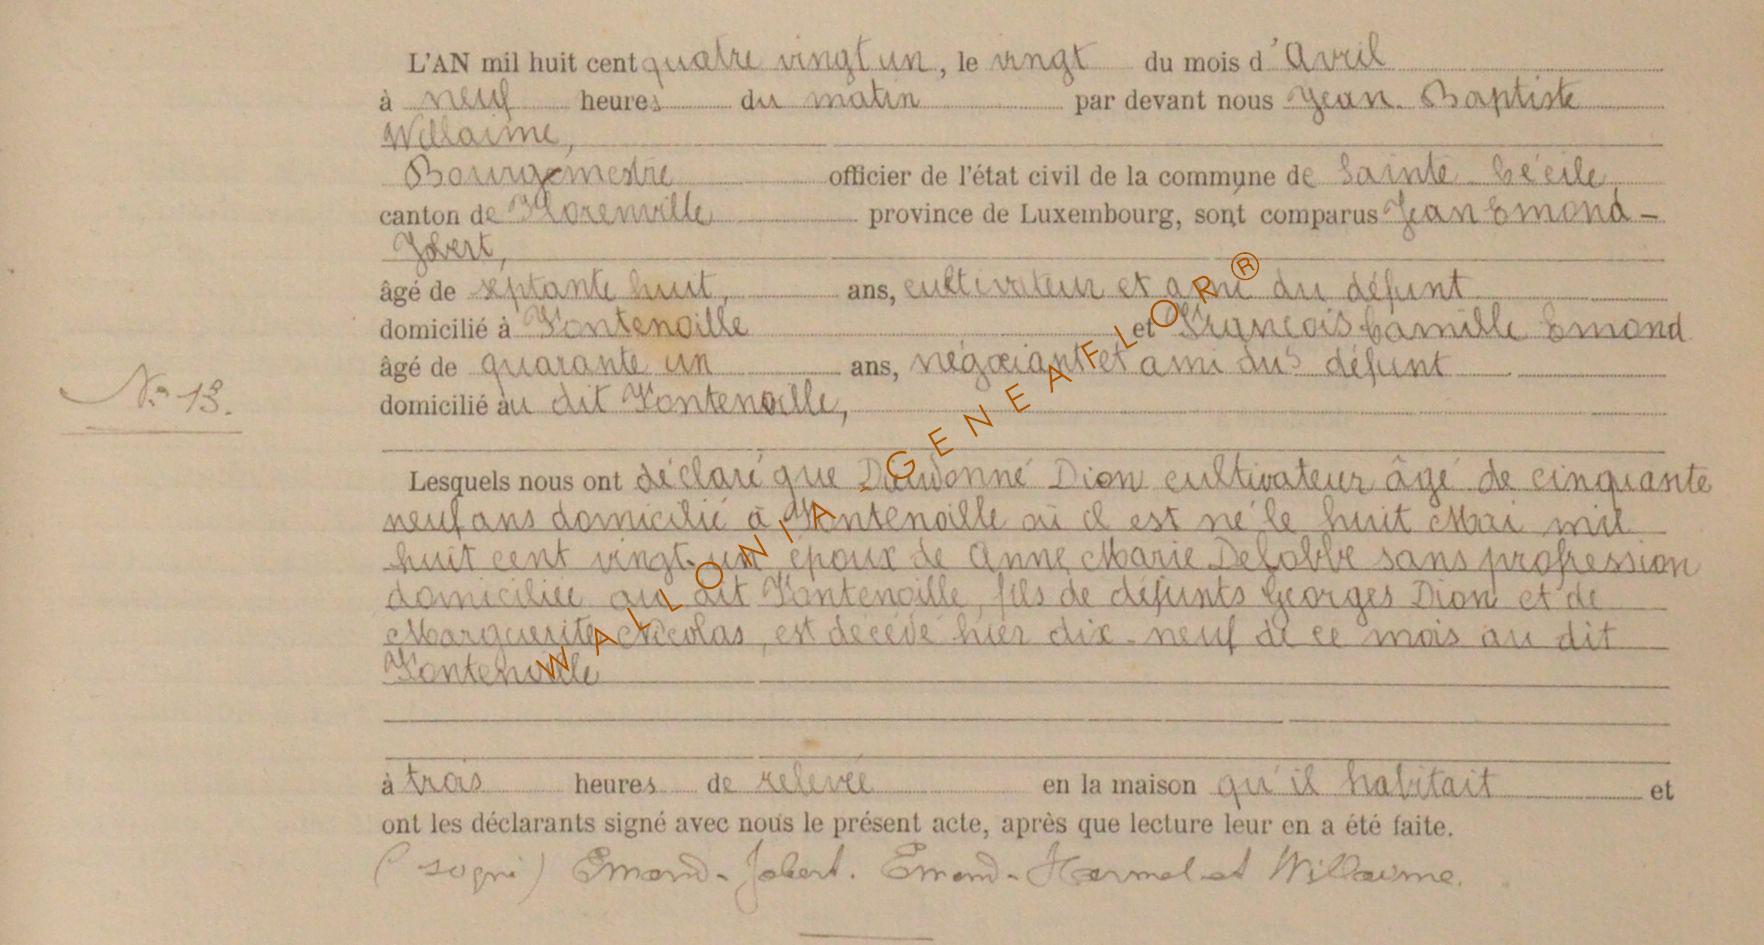 L'AN mil huit cent quatre vingt un, le vingt du mois d'Avril
à neuf heures du matin par devant nous Jean-Baptiste
Willaime,
Bourgmestre officier de l'état civil de la commune de Sainte Cécile
canton de Florenville province de Luxembourg, sont comparus Jean Emond-
Jobert,
âgé de septante huit, ans, cultivateur et ami du défunt
domicilié à Fontenoille et François Camille Emond
âgé de quarante un ans, négociant et ami du défunt
N° 13.
domicilié au dit Fontenoille,
Lesquels nous ont déclaré que Dieudonné Dion cultivateur âgé de cinquante
neuf ans domicilié à Fontenoille où il est né le huit Mai mil
huit cent vingt-un, époux de Anne Marie Delobbe sans profession
domiciliée au dit Fontenoille, fils de défunts Georges Dion et de
Marguerite Nicolas, est décédé hier dix-neuf de ce mois au dit
Fontenoille
à trois heures de relevée en la maison qu'il habitait et
ont les déclarants signé avec nous le présent acte, après que lecture leur en a été faite.
(signé) Emond-Jobert. Emond-Harmel et Willaime.
WALLONIA - GENEAFLOR®